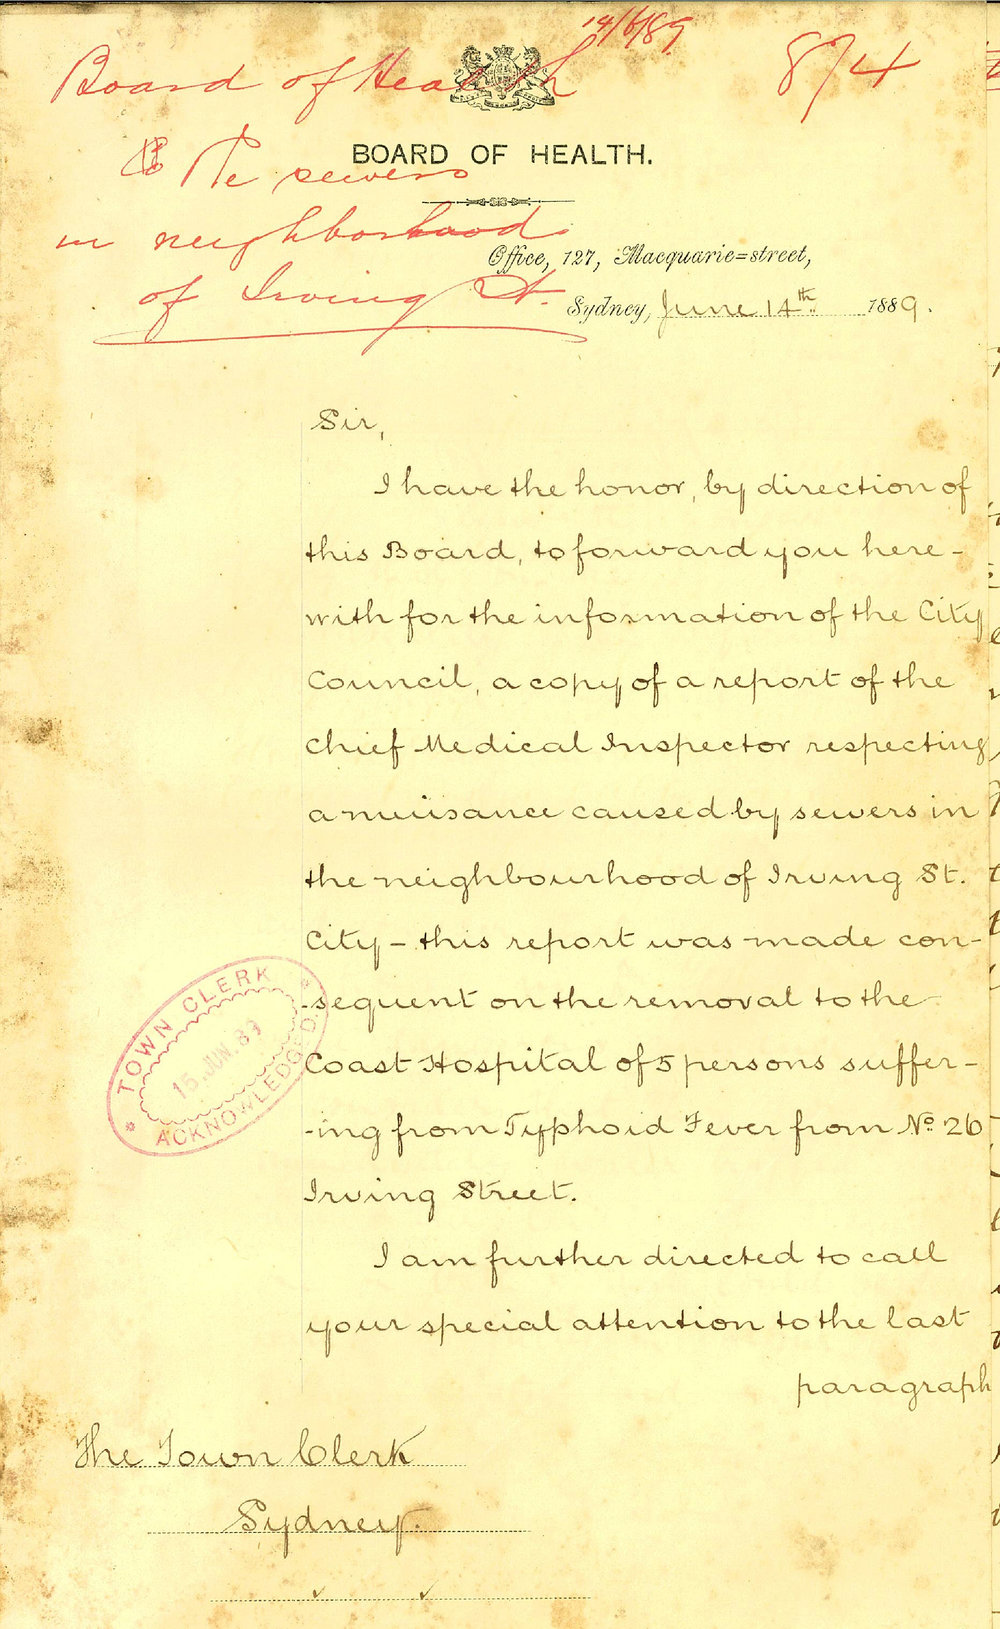 14/6/89
Board of Health 874
BOARD OF HEALTH.
Re sewers
in neighborhood
of Irving St.
Office, 127, Macquarie=street,
Sydney, June 14th 1889.
Sir,
I have the honor, by direction of
this Board, to forward you here-
with for the information of the City
Council, a copy of a report of the
Chief Medical Inspector respecting
a nuisance caused by sewers in
the neighbourhood of Irving St.
City – this report was made con-
-sequent on the removal to the
Coast Hospital of 5 persons suffer-
-ing from Typhoid Fever from No. 26
Irving Street.
I am further directed to call
your special attention to the last
paragraph
TOWN CLERK
15. JUN. 89
ACKNOWLEDGED.
The Town Clerk
Sydney.